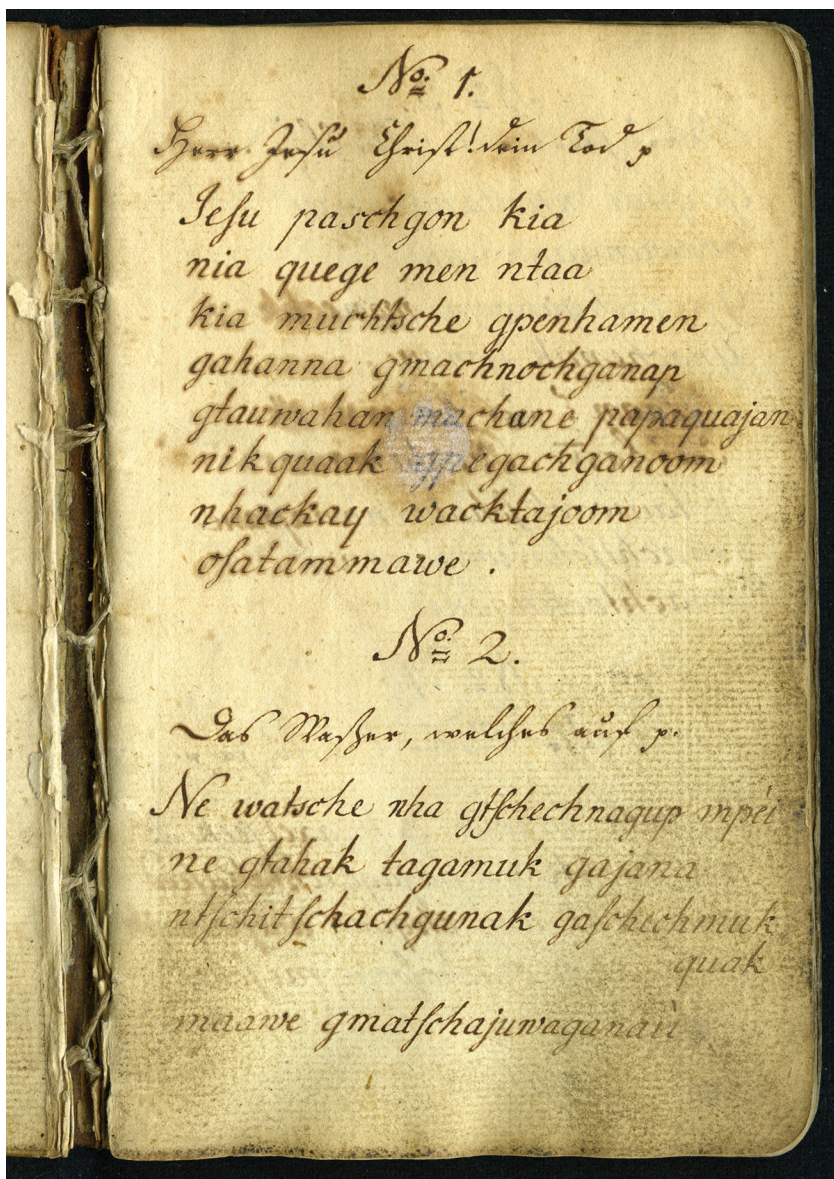 No. 1.
Herr Jesu Christ! dein Tod p
Jeſu paschgon kia
nia quege men ntaa
kia muchtsche gpenhamen
gahanna gmachnochganap
gtauwahan machane papaquajan
nikquaak gpegachganoom
nhackay wacktajoom
oſatammawe .
No. 2.
Das Waßer, welches auf p.
Ne watsche nha gtſchechnagup mpéi
ne gtahak tagamuk gajana
ntſchitſchachgunak gaſchechmuk
quak
maawe gmatſchajuwaganau